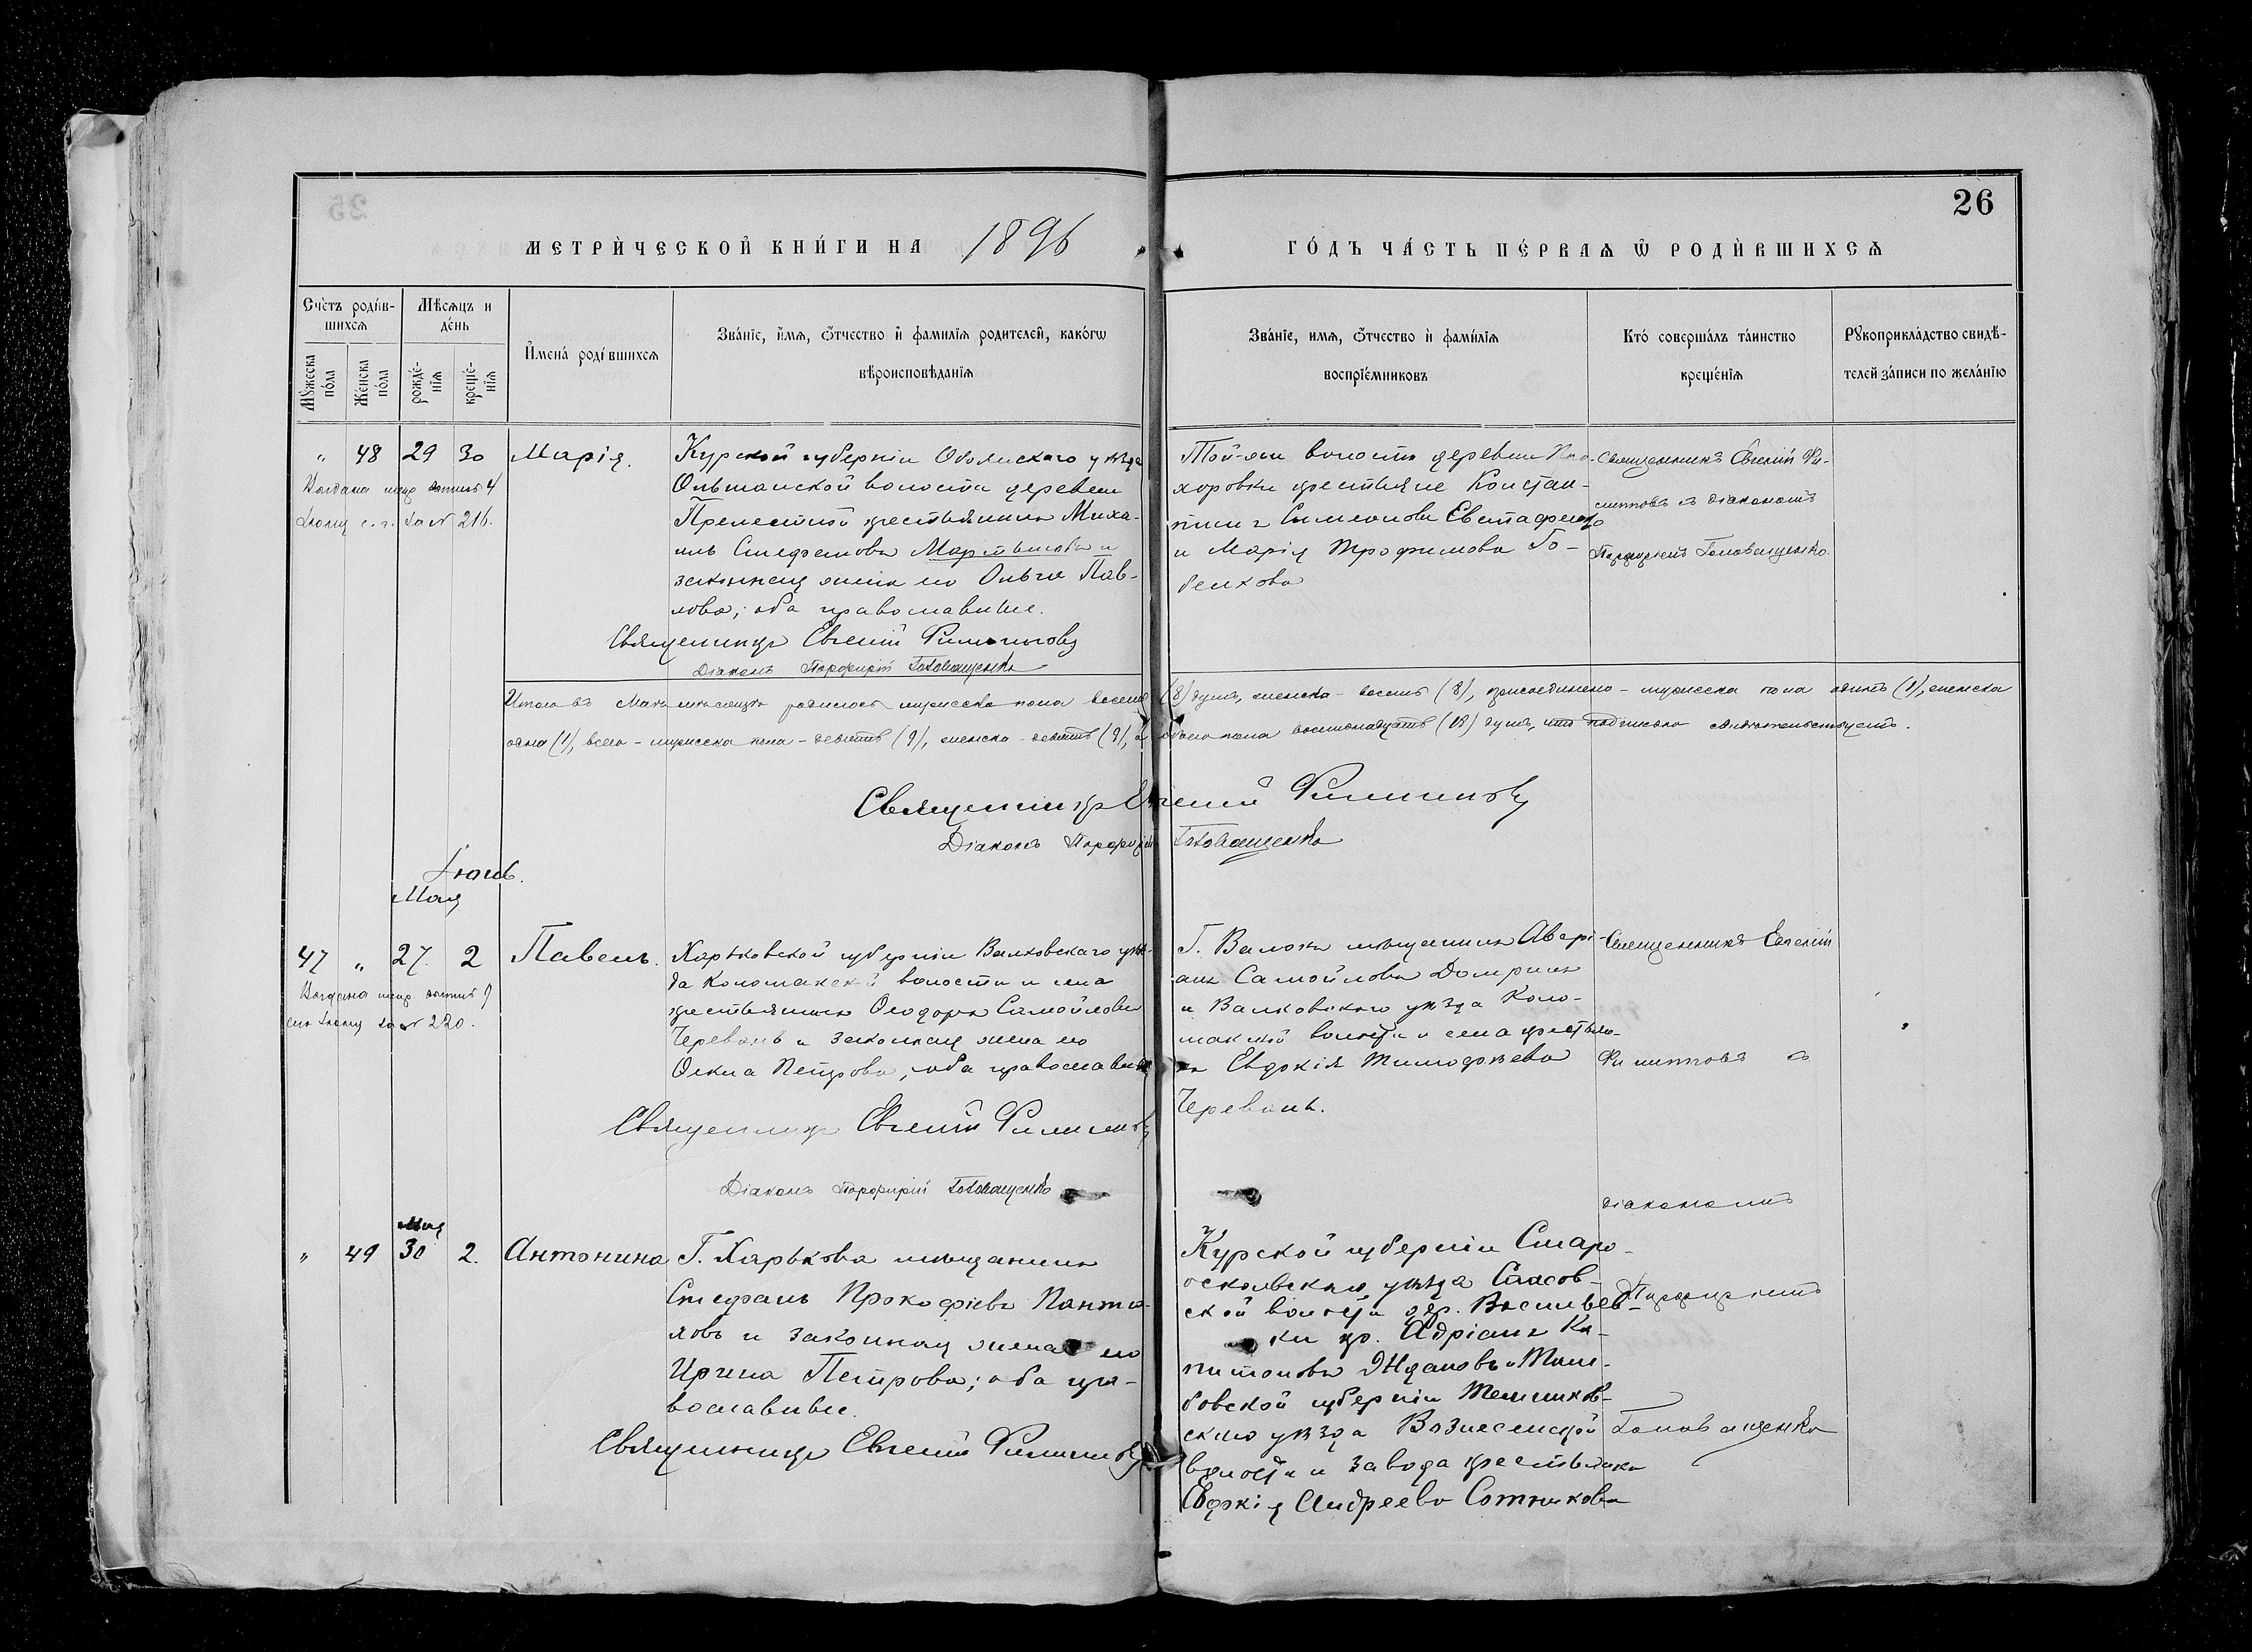 26
МЕТРИ́ЧЕСКОЙ КНИ́ГИ НА 1896 ГО́ДЪ ЧА́СТЬ ПЕ́РВАЯ Ѡ РОДИ́ВШИХСЯ
Сче́тъ роди́в-
шихся
Мѣсяцъ и
де́нь
Му́жеска
по́ла
Же́нска
по́ла
рожде́-
нія
креще́-
нія
И҆мена́ роди́вшихся
Зва́ніе, и҆мя, ѻ҆тчество и҆ фами́лія родителей, како́гѡ
вѣроисповѣданія
Зва́ніе, имя, ѻ҆тчество и҆ фами́лія
воспріе́мниковъ
Кто́ соверша́лъ та́инство
креще́нія
Рꙋкоприкла́дство свидѣ́-
телей за́писи по жела́нію
" 48 29 30 Марія.
Выдана метр выпись 4
Іюня с. г. за № 216.
Курской губерніи Обоянскаго уѣзда
Ольшанской волости деревни
Прелестной крестьянинъ Миха-
илъ Стефановъ Мартыновъ и
законная жена его Ольга Пав-
лова; оба православные.
Священникъ Евгеній Филипповъ
Діаконъ Порфирій Головащенко
Той-же волости деревни Про-
хоровки крестьяне Констан-
тинъ Симеоновъ
и Марія Трофимова
Священникъ Евгеній Фи-
липповъ съ діакономъ
Порфиріемъ Головащенко.
Итого въ Маѣ мѣсяцѣ родилось мужеска пола восемь (8) душъ, женска - восемь (8), присоединено - мужеска пола одинъ (1), женска
одна (1), всего - мужеска пола - девять (9), женска - девять (9), а обоего пола восемнадцать (18) душъ, что подписью свидѣтельствуемъ.
Священникъ Евгеній Филипповъ
Діаконъ Порфирій Головащенко
Іюнь.
Мая
47 " 27. 2 Павелъ.
Выдана метр выпись 9
сего Іюня за № 220.
Харьковской губерніи Валковскаго уѣз-
да Коломакской волости и села
крестьянинъ Ѳеодоръ Самойловъ
Черевань и законная жена его
Ѳекла Петрова; оба православные
Священникъ Евгеній Филипповъ
Діаконъ Порфирій Головащенко
Г. Валокъ мѣщанинъ Авері-
ан Самойловъ
и Валковскаго уѣзда Коло-
макской волости и села крестьян-
ка Евдокія Тимофѣева
Черевань.
Священникъ Евгеній
Филипповъ съ
діакономъ
Порфиріемъ
Головащенко
Мая
" 49 30 2. Антонина
Г. Харькова мѣщанинъ
Стефанъ Прокофіевъ
и законная жена его
Ирина Петрова; оба пра-
вославные.
Священникъ Евгеній Филипповъ
Курской губерніи Старо-
оскольскаго уѣзда Спасов-
ской волости дер. Васильев-
ки кр. Адріанъ Ка-
питоновъ Ждановъ и Там-
бовской губерніи Темников-
скаго уѣзда Вознесенской
волости и завода крестьянка
Евдокія Андреева Сотникова